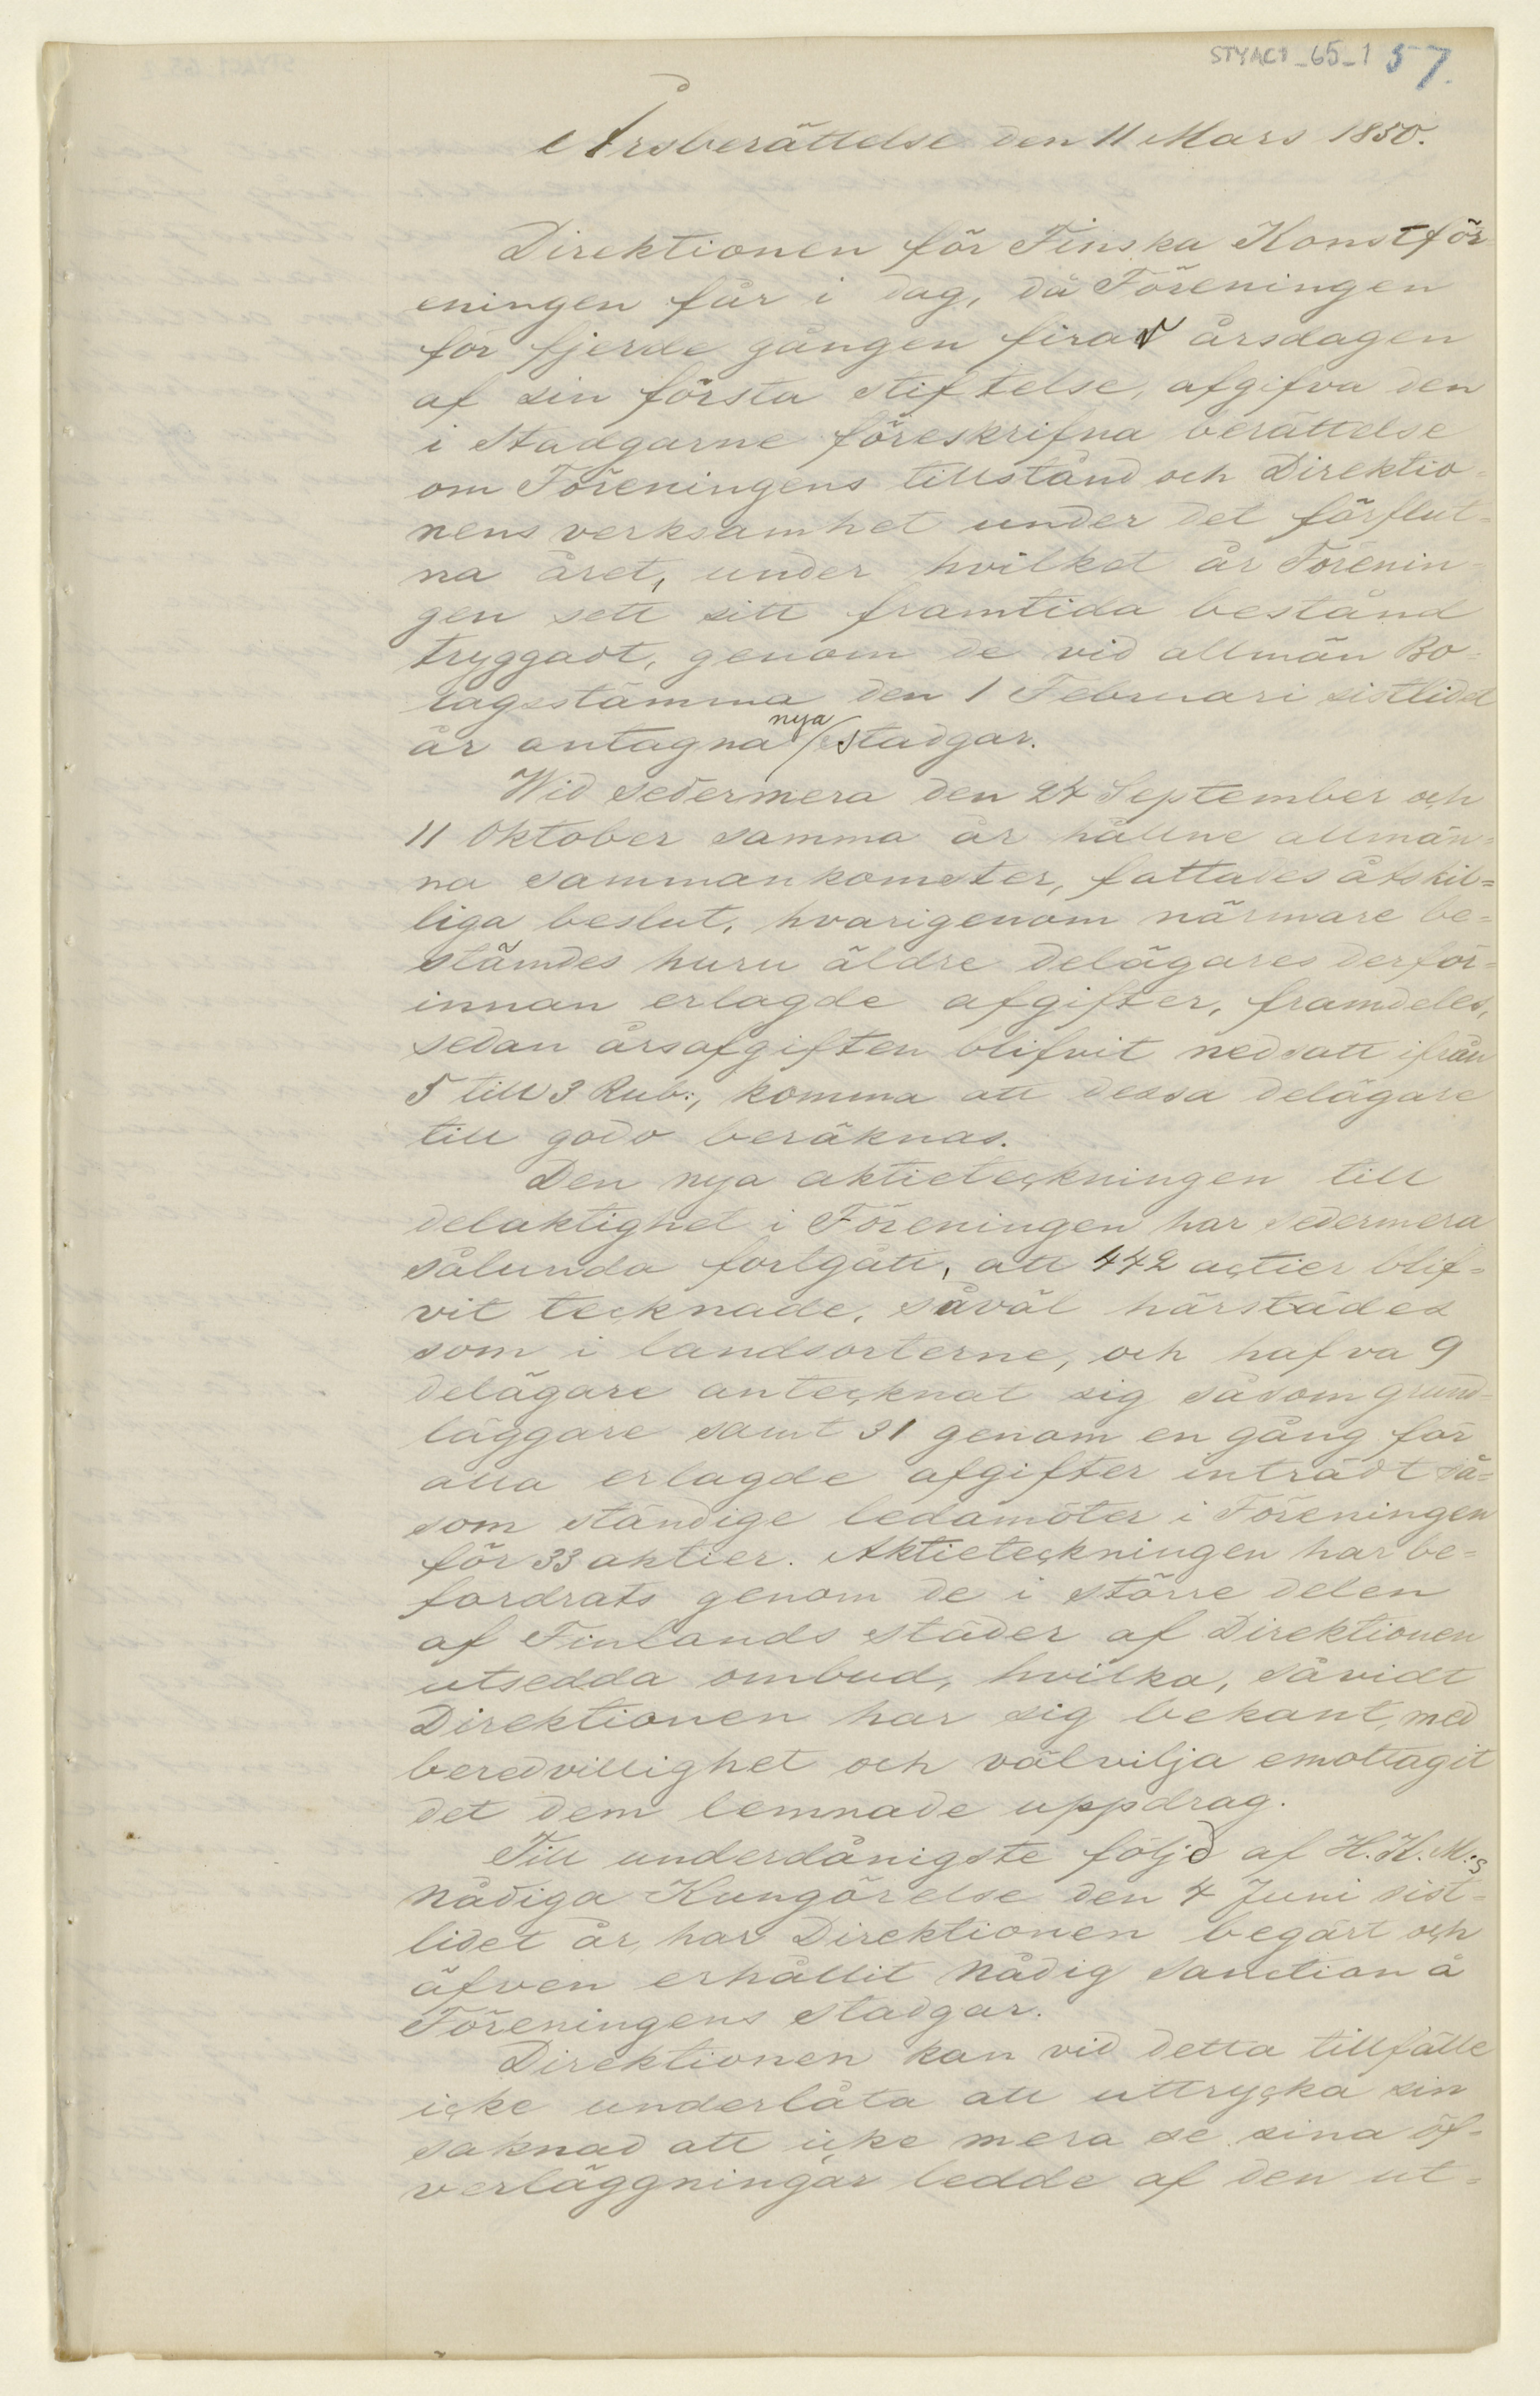 STYAC1_65_1 57.
Årsberättelse den 11 Mars 1850.
Direktionen för Finska Konstför-
eningen får i dag, då Föreningen
för fjerde gången firar årsdagen
af sin första stiftelse, afgifva den
i Stadgarne föreskrifna berättelse
om Föreningens tillstånd och Direktio-
nens verksamhet under det förflut-
na året, under hvilket år Förenin-
gen sett sitt framtida bestånd
tryggadt, genom de vid allmän Bo-
lagsstämma den 1 Februari sistlidet
år antagna nya stadgar.
Wid sedermera den 24 September och
11 Oktober samma år hållne allmän-
na sammankomster, fattades åtskil=
liga beslut, hvarigenom närmare be=
stämdes huru äldre delägares derför=
innan erlagde afgifter, framdeles,
sedan årsafgiften blifvit nedsatt ifrån
5 till 3 Rub:, komma att dessa delägare
till godo beräknas.
Den nya aktieteckningen till
delaktighet i Föreningen har sedermera
sålunda fortgått, att 442 actier blif=
vit tecknade, såväl härstädes
som i landsorterne, och hafva 9
delägare antecknat sig såsom grund-
läggare samt 31 genom en gång för
alla erlagde afgifter inträdt så=
som ständige ledamöter i Föreningen
för 33 aktier. Aktieteckningen har be=
fordrats genom de i större delen
af Finlands städer af Direktionen
utsedda ombud, hvilka, såvidt
Direktionen har sig bekant, med
beredvillighet och välvilja emottagit
det dem lemnade uppdrag.
Till underdånigste följd af H.K.M:s
Nådiga Kungörelse den 4 Juni sist-
lidet år, har Direktionen begärt och
äfven erhållit Nådig Sanction å
Föreningens stadgar.
Direktionen kan vid detta tillfälle
icke underlåta att uttrycka sin
saknad att icke mera se sina öf-
verläggningar ledde af den ut=